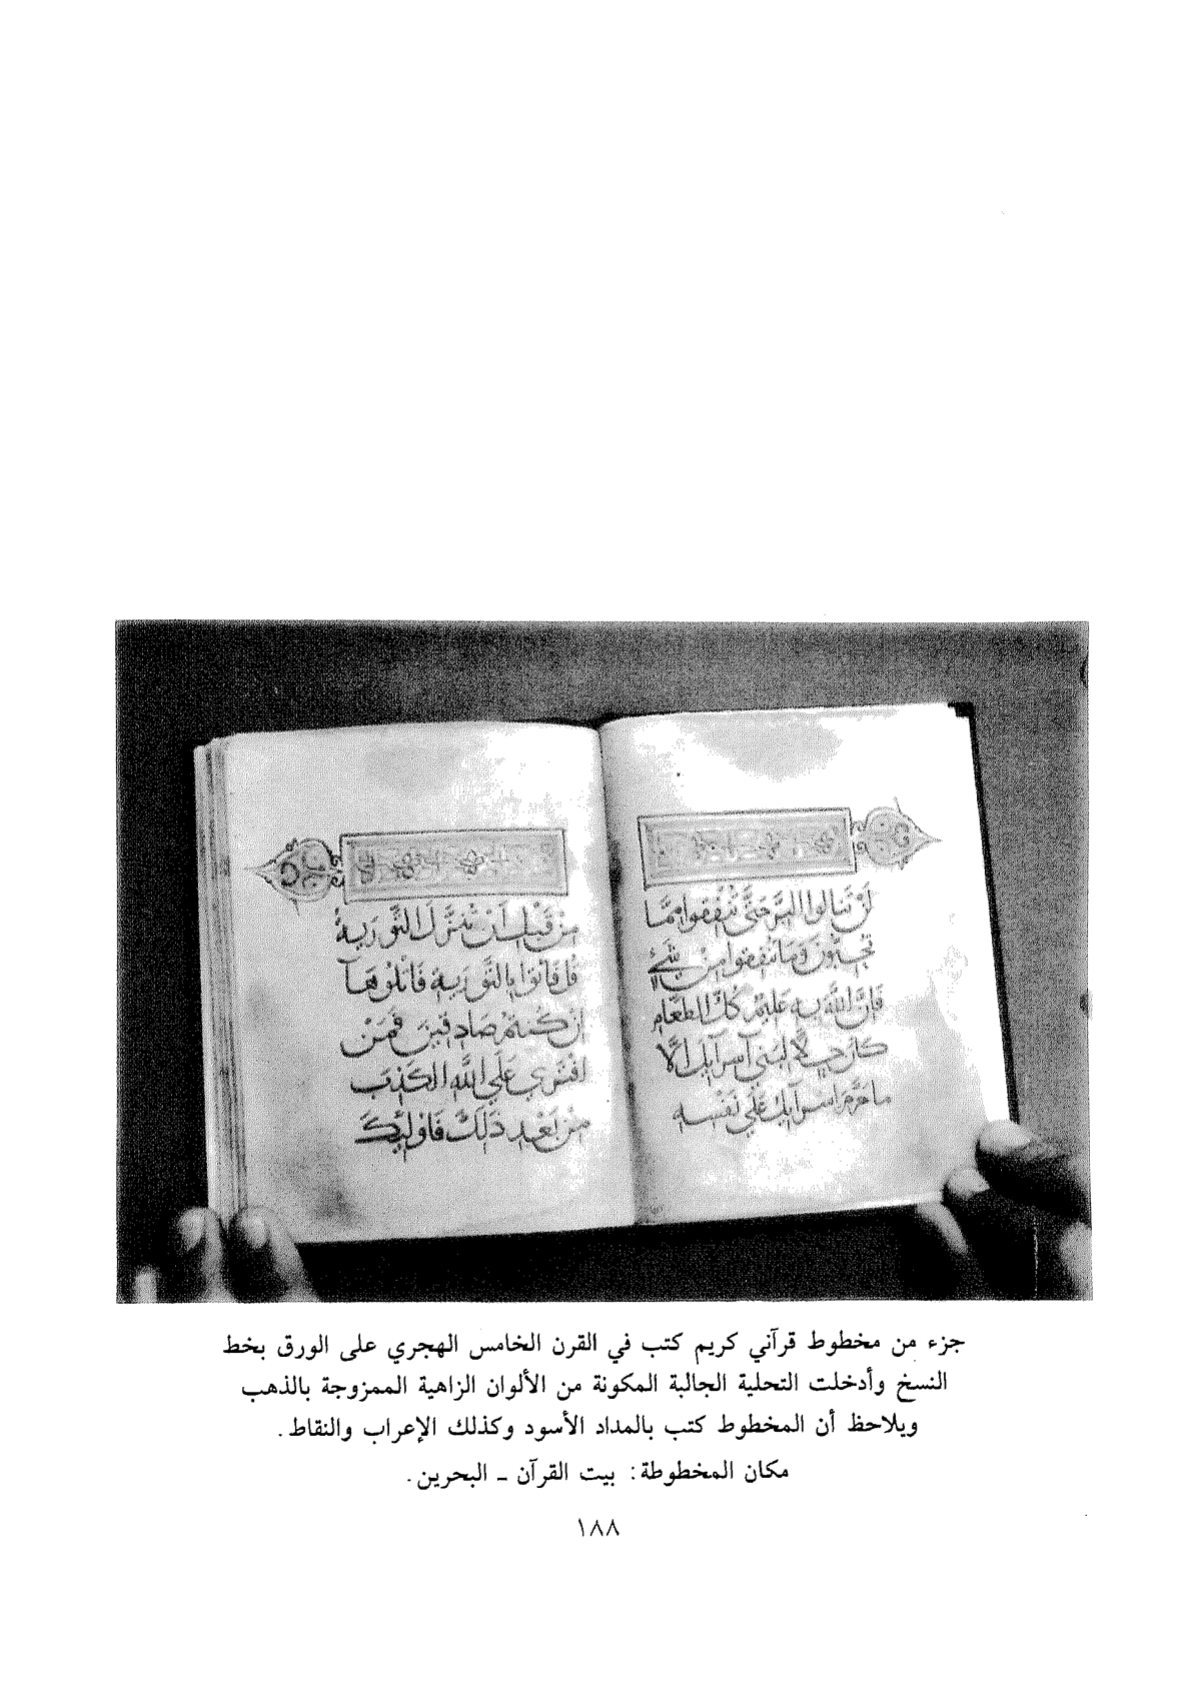 لَنْ تَنَالُوا الْبِرَّ حَتَّى تُنْفِقُوا مِمَّا
تُحِبُّونَ وَمَا تُنْفِقُوا مِنْ شَيْءٍ
فَإِنَّ اللَّهَ بِهِ عَلِيمٌ كُلُّ الطَّعَامِ
كَانَ حِلًّا لِبَنِي آسْرَآيِلَ إِلَّا
مَا حَرَّمَ اسْرَآيِلُ عَلَى نَفْسِهِ
مِنْ قَبْلِ أَنْ تُنَزَّلَ التَّوْرَيةُ
قُلْ فَاتُوا بِالتَّوْرَيةِ فَاتْلُوهَآ
إِنْ كُنْتُمْ صَادِقِينَ فَمَنْ
افْتَرَى عَلَى اللَّهِ الْكَذِبَ
مِنْ بَعْدِ ذَلِكَ فَاوْلَيِكَ
جزء من مخطوط قرآني كريم كتب في القرن الخامس الهجري على الورق بخط
النسخ وأدخلت التحلية الجالبة المكونة من الألوان الزاهية الممزوجة بالذهب
ويلاحظ أن المخطوط كتب بالمداد الأسود وكذلك الإعراب والنقاط .
مكان المخطوطة : بيت القرآن ـ البحرين .
١٨٨